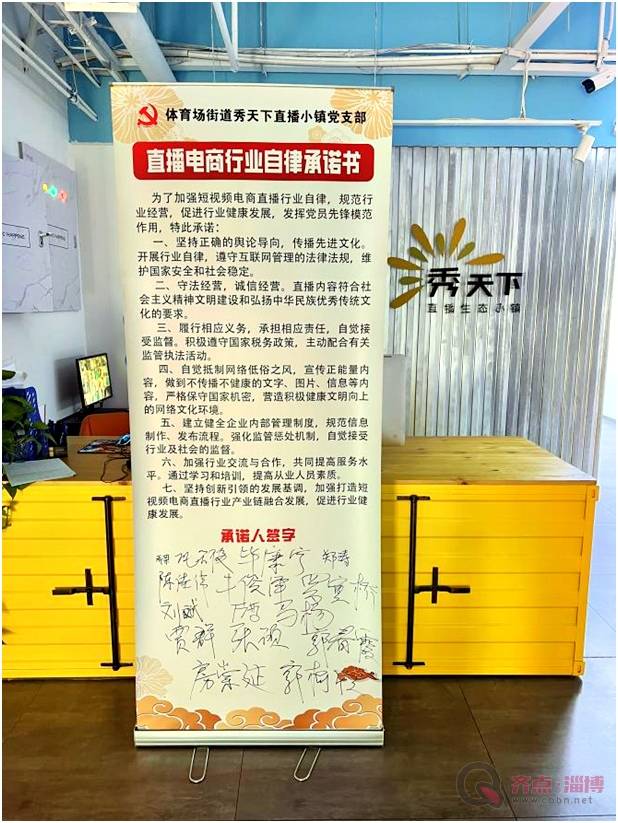 体育场街道秀天下直播小镇党支部
直播电商行业自律承诺书
为了加强短视频电商直播行业自律，规范行
业经营，促进行业健康发展，发挥党员先锋模范
作用，特此承诺：
一、坚持正确的舆论导向，传播先进文化。
开展行业自律，遵守互联网管理的法律法规，维
护国家安全和社会稳定。
二、守法经营，诚信经营。直播内容符合社
会主义精神文明建设和弘扬中华民族优秀传统文
化的要求。
三、履行相应义务，承担相应责任，自觉接
受监督。积极遵守国家税务政策，主动配合有关
监管执法活动。
四、自觉抵制网络低俗之风，宣传正能量内
容，做到不传播不健康的文字、图片、信息等内
容，严格保守国家机密，营造积极健康文明向上
的网络文化环境。
五、建立健全企业内部管理制度，规范信息
制作、发布流程。强化监管惩处机制，自觉接受
行业及社会的监督。
六、加强行业交流与合作，共同提高服务水
平。通过学习和培训，提高从业人员素质。
七、坚持创新引领的发展基调，加强打造短
视频电商直播行业产业链融合发展，促进行业健
康发展。
承诺人签字
刘斌 马杨
贾群 张硕 郭春霞
房崇延 郭
秀天下
直播生态小镇
齐点·淄博
www.cnbn.net